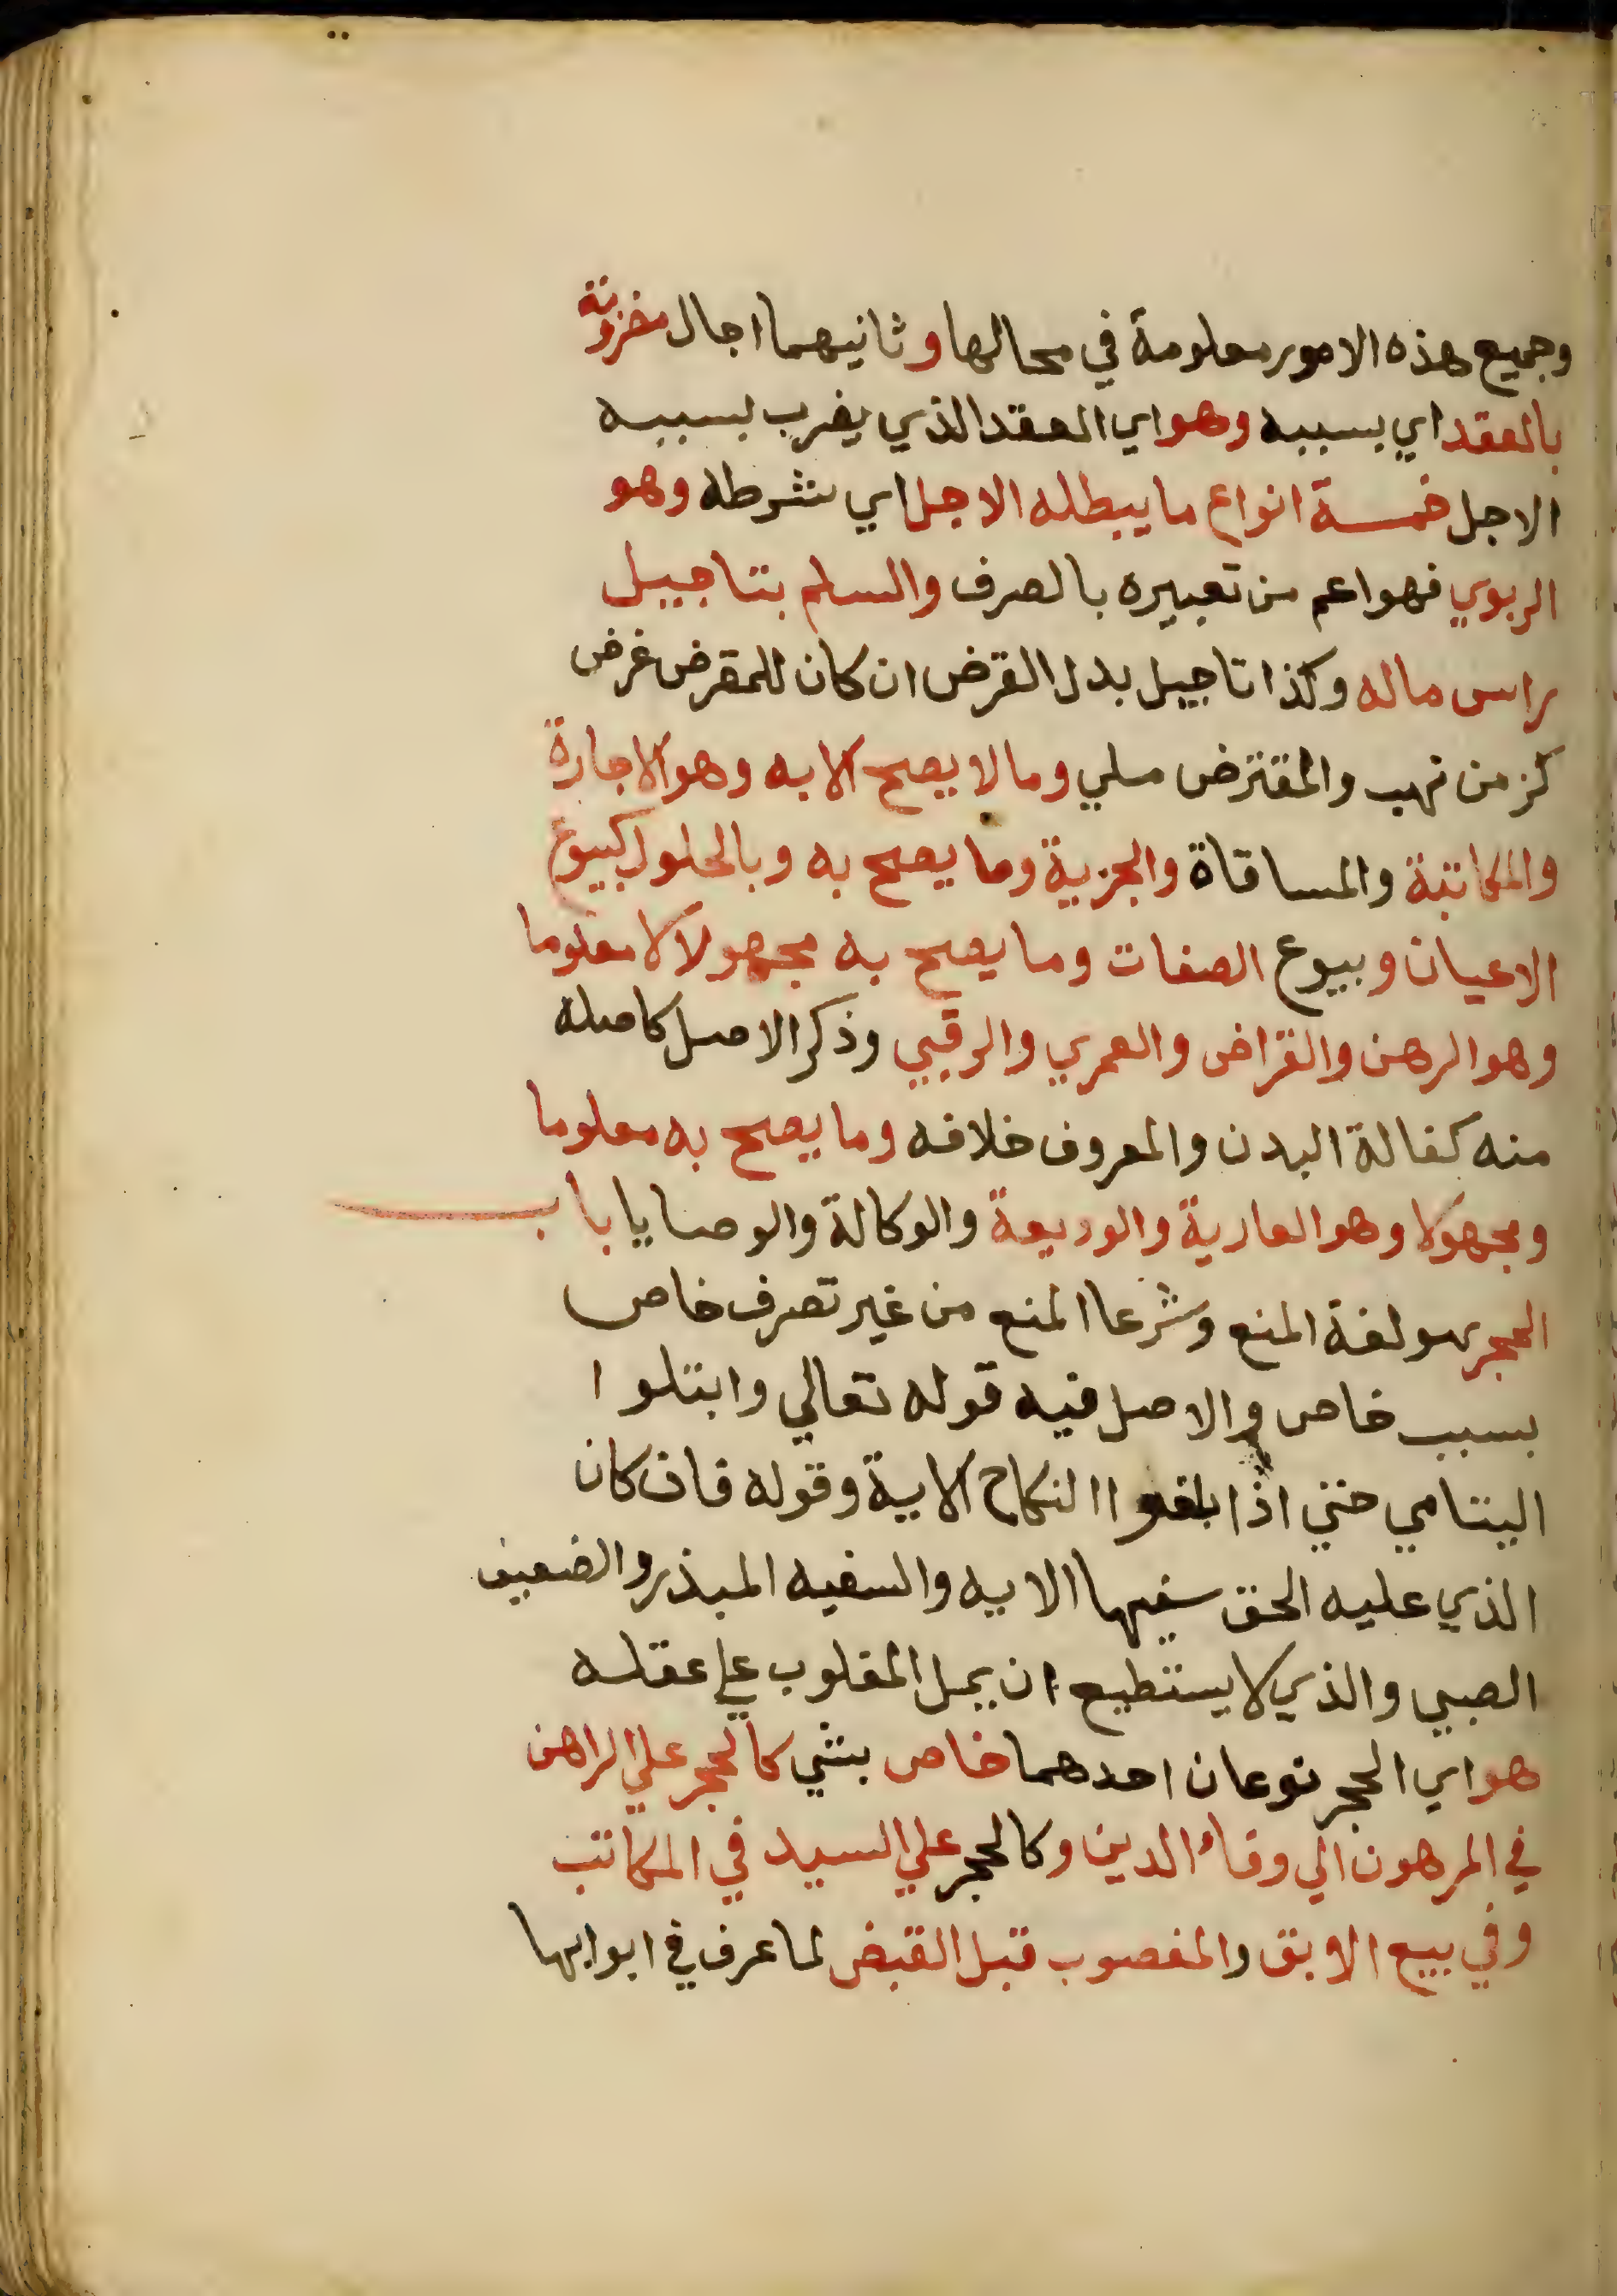 وجميع هذه الامور معلومة في محالها وثانيهما اجال مضروبة
بالعقد اي بسببه وهو اي العقد الذي يضرب بسببه
الاجل خمسة انواع ما يبطله الاجل اي شرطه وهو
الربوي فهو اعم من تعبيره بالصرف والسلم بتاجيل
راس ماله وكذا تاجيل بدل القرض ان كان للمقرض غرض
كزمن نهب والمقترض ملي وما لا يصح الا به وهو الاجارة
والمكاتبة والمساقاة والجزية وما يصح به وبالحلول كبيوع
الاعيان وبيوع الصفات وما يصح به مجهولا لا معلوما
وهو الرهن والقراض والعمري والرقبي وذكر الاصل كاصله
منه كفالة البدن والمعروف خلافه وما يصح به معلوما
ومجهولا وهو العارية والوديعة والوكالة والوصايا باب
الحجر هو لغة المنع وشرعا المنع من غير تصرف خاص
بسبب خاص والاصل فيه قوله تعالي وابتلوا
اليتامي حتي اذا بلغوا النكاح الاية وقوله فان كان
الذي عليه الحق سفيها الايه والسفيه المبذر والضعيف
الصبي والذي لا يستطيع ان يمل المغلوب علي عقله
هو اي الحجر نوعان احدهما خاص بشي كالحجر علي الراهن
في المرهون الي وفاء الدين وكالحجر علي السيد في المكاتب
وفي بيع الابق والمغصوب قبل القبض لما عرف في ابوابها